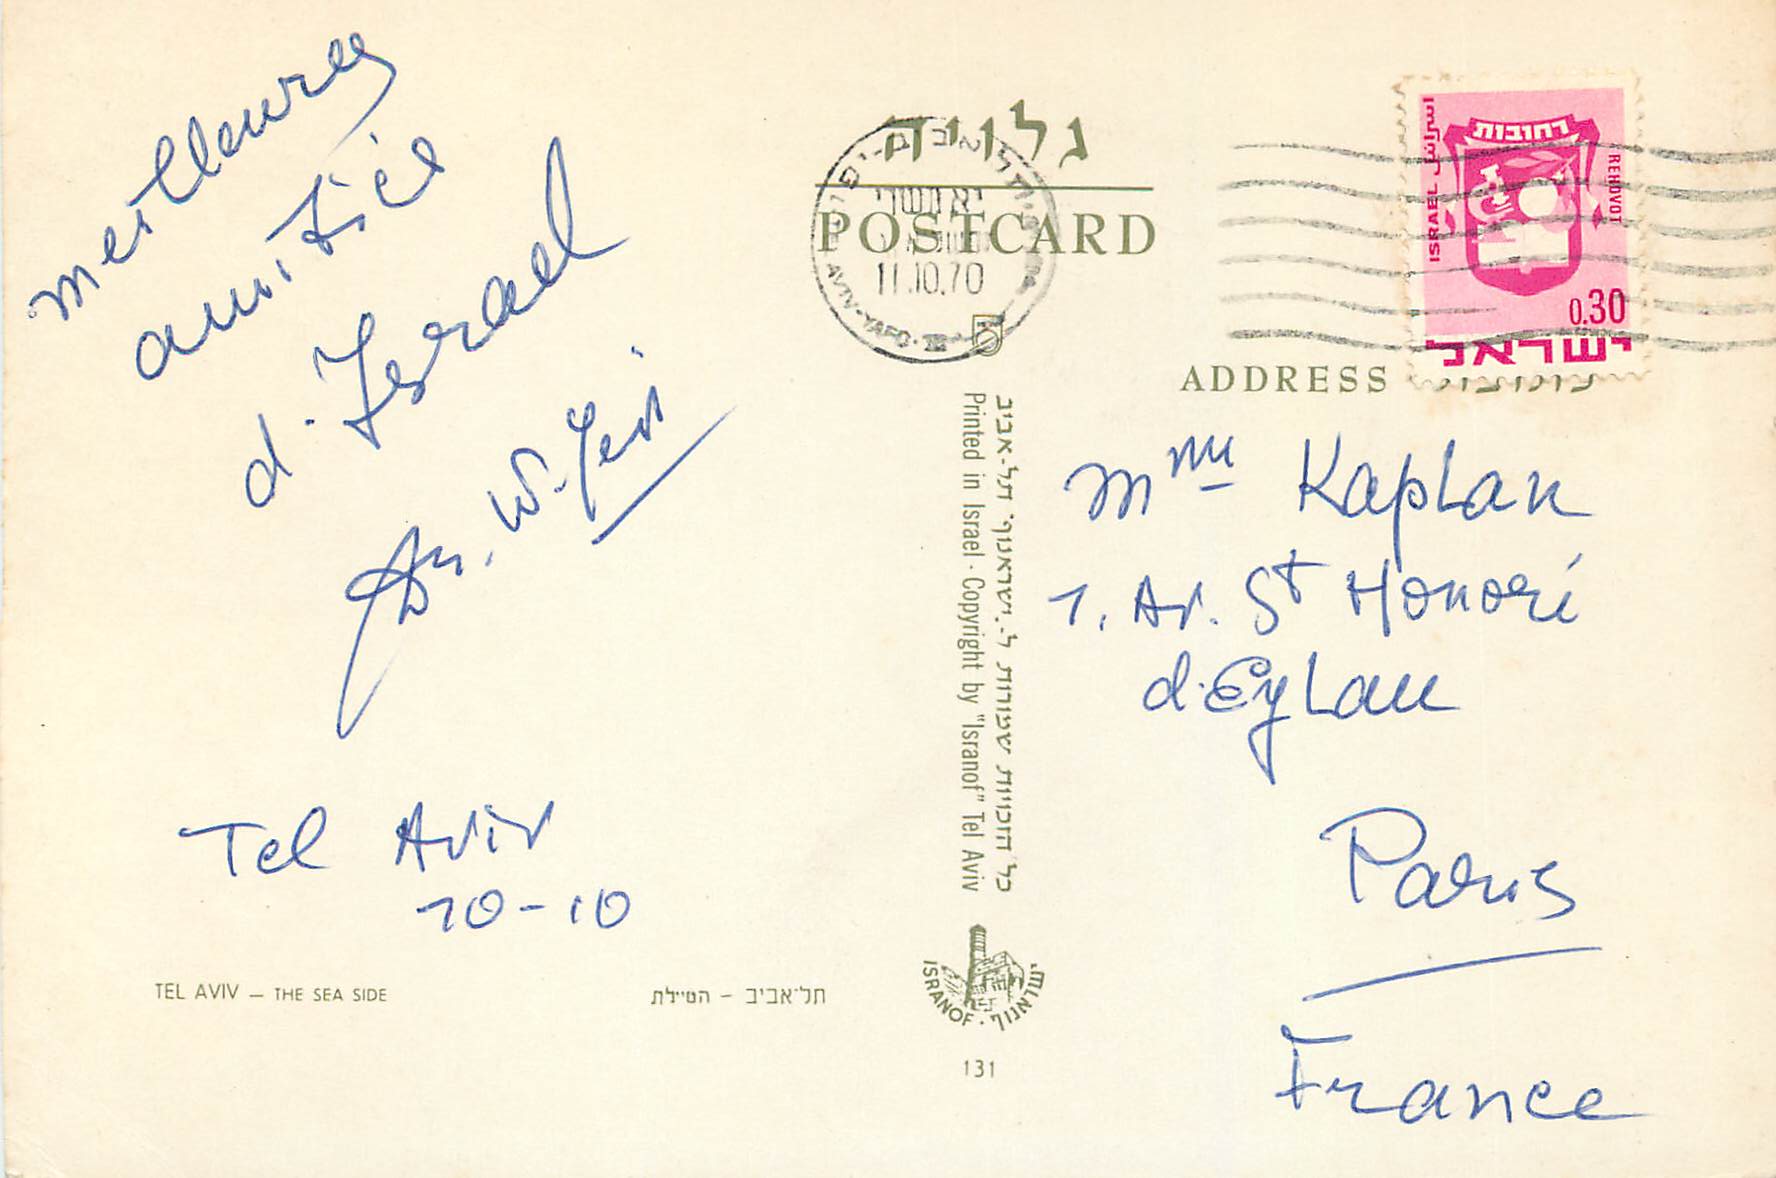 meilleures
amitiés
d'Israel
Dr. W.
Tel Aviv
10-10
TEL AVIV – THE SEA SIDE
תל-אביב – הטיילת
גלויה
POSTCARD
תל אביב-יפו
יא תשרי
11.10.70
AVIV-YAFO
5
כל הזכויות שמורות ל-ישראנוף תל-אביב
Printed in Israel · Copyright by "Isranof" Tel Aviv
ISRANOF · ישראנוף
131
רחובות
REHOVOT
ISRAEL اسرائيل
0.30
ישראל
ADDRESS
Mme Kaplan
1. Av. St Honoré
d'Eylau
Paris
France